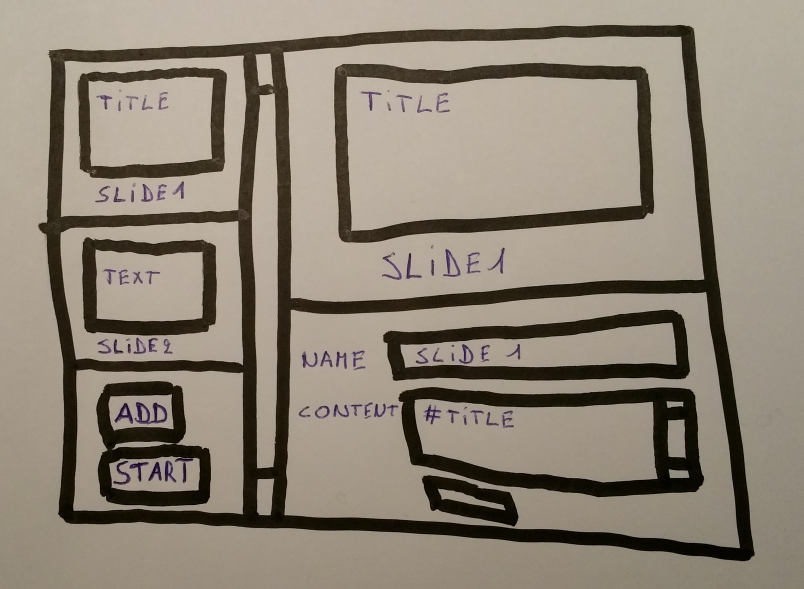 TiTLE
SLiDE1
TEXT
SLiDE2
ADD
START
TiTLE
SLiDE1
NAME SLiDE 1
CONTENT #TiTLE